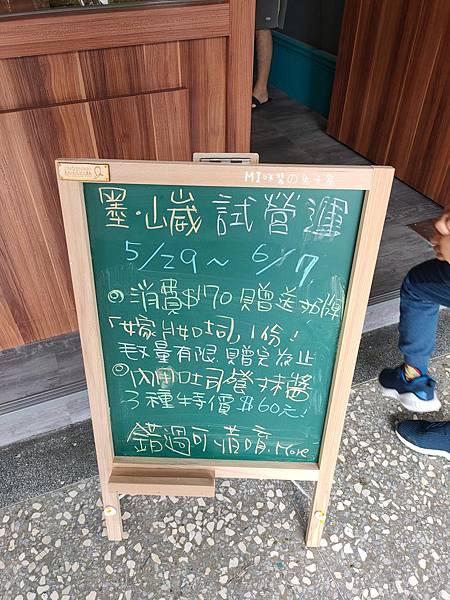 MI味醬の兔子窩
墨·山崴 試營運
5/29～6/17
①消費$170贈送招牌
「嫁妝吐司」1份！
數量有限 贈完為止
②內用吐司餐抹醬
3種特價$60元！
錯過可惜唷.More